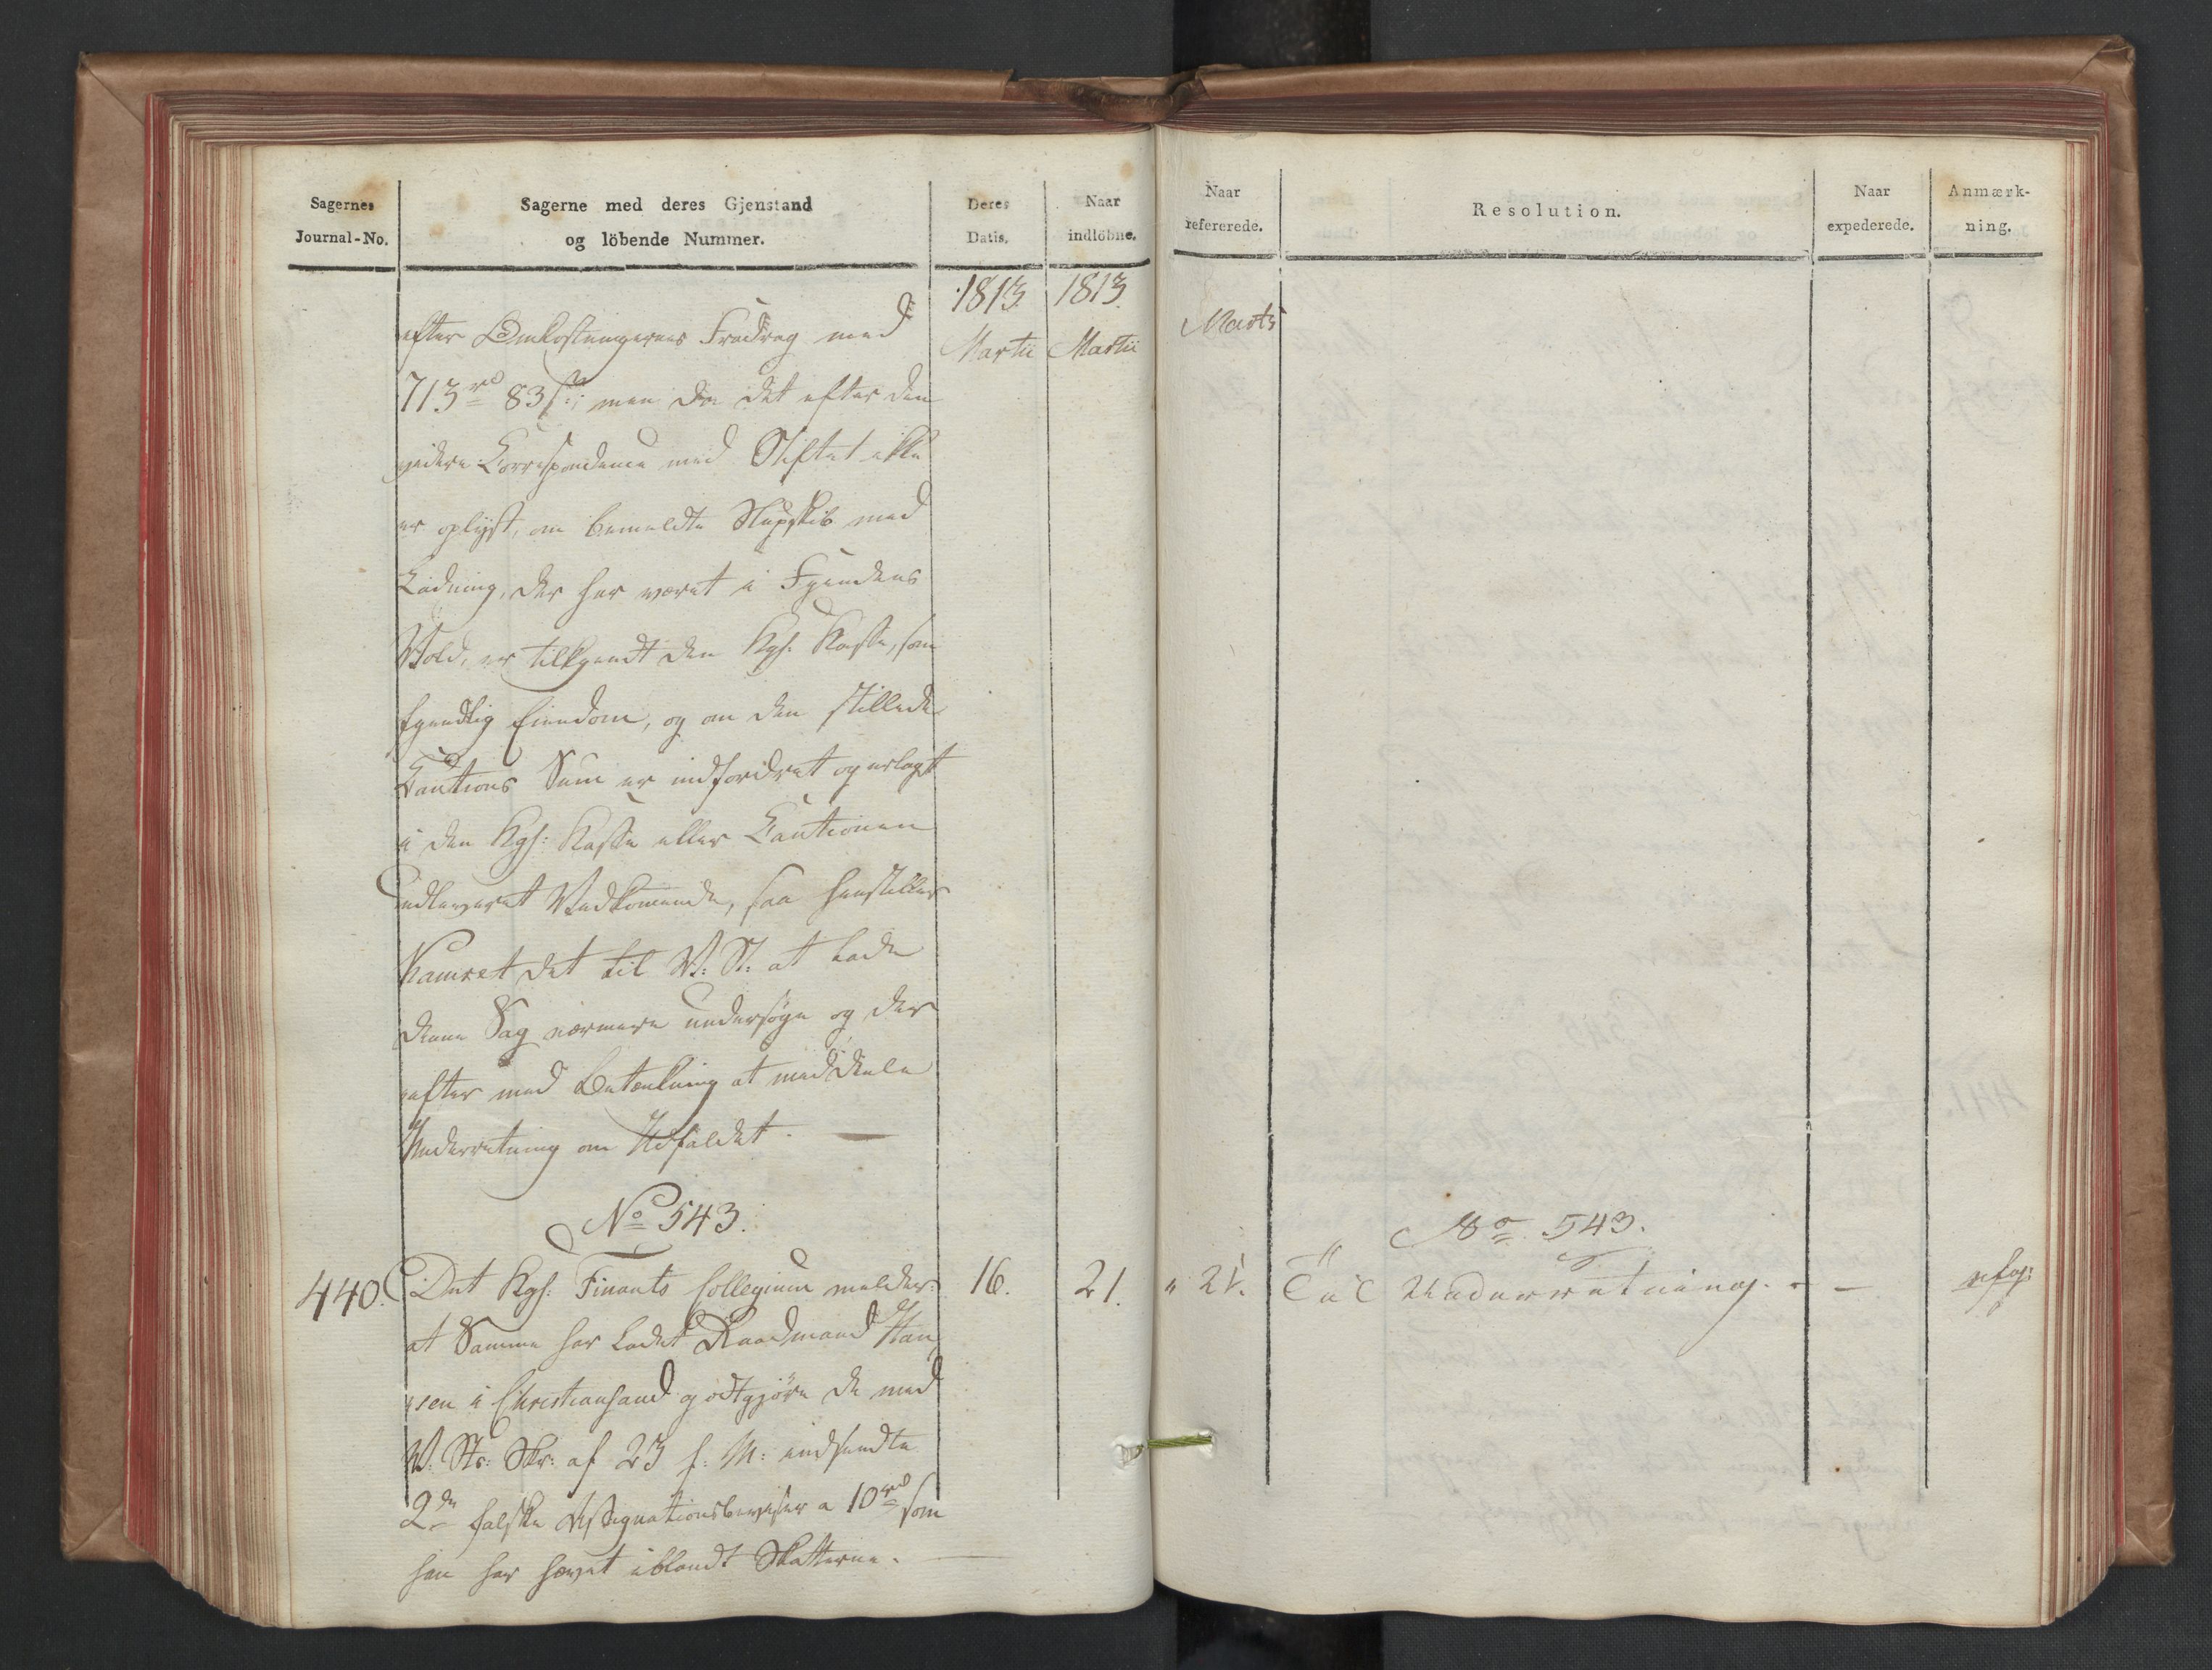 Sagernes
Journal-No.
Sagerne med deres Gjenstand
og löbende Nummer.
Deres
Datis.
Naar
indlöbne.
1813.
Martii
1813.
Martii
efter Omkostningernes Fradrag med
713 rd 83 s:; men da det efter den
videre Correspondence med Stiftet ikke
er oplÿst, om bemeldte Skib med
Ladning, der har været i Fjendens
Vold, er tilkjendt den Kgl. Kasse, som
fjendtlig Eiendom, og om den stillede
Cautions Sum er indfordret og erlagt
i den Kgl: Kasse eller Cautionen
udleveret Vedkommende, saa henstiller
Kamret det til V: St: at lade
denne Sag nærmere undersøge og der
efter med Betænkning at meddele
Underretning om Udfaldet. —
No 543.
440. Det Kgl: Finants Collegium melder 16. 21.
at Samme har ladet Raadmand Han
sen i Christiansand godtgjöre de med
V. Sts: Skr: af 23 f: M: indsendte
2de falske Assignationsbeviser a 10 rd som
han har hævet iblandt Skatterne. —
Naar
refererede.
Resolution.
Naar
expederede.
Anmærk-
ning.
Marts
No 543.
" 21. Til Underretning. — —